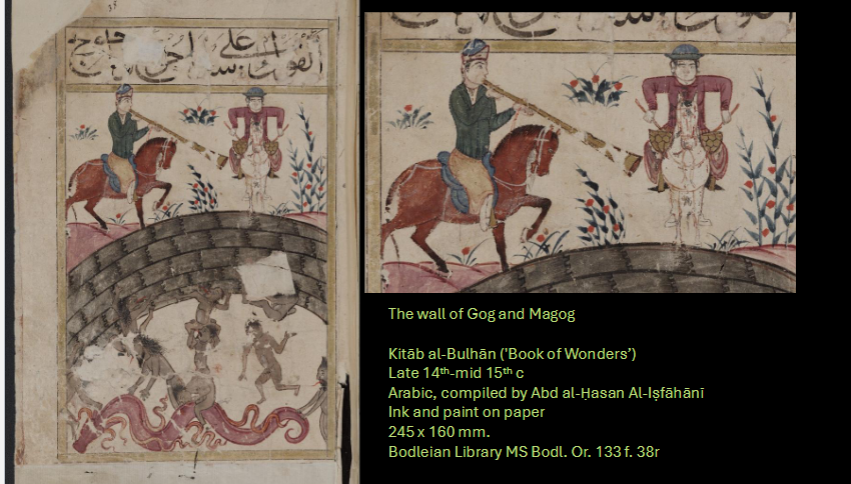 على
The wall of Gog and Magog
Kitāb al-Bulhān ('Book of Wonders’)
Late 14ᵗʰ-mid 15ᵗʰ c
Arabic, compiled by Abd al-Ḥasan Al-Iṣfāhānī
Ink and paint on paper
245 x 160 mm.
Bodleian Library MS Bodl. Or. 133 f. 38r